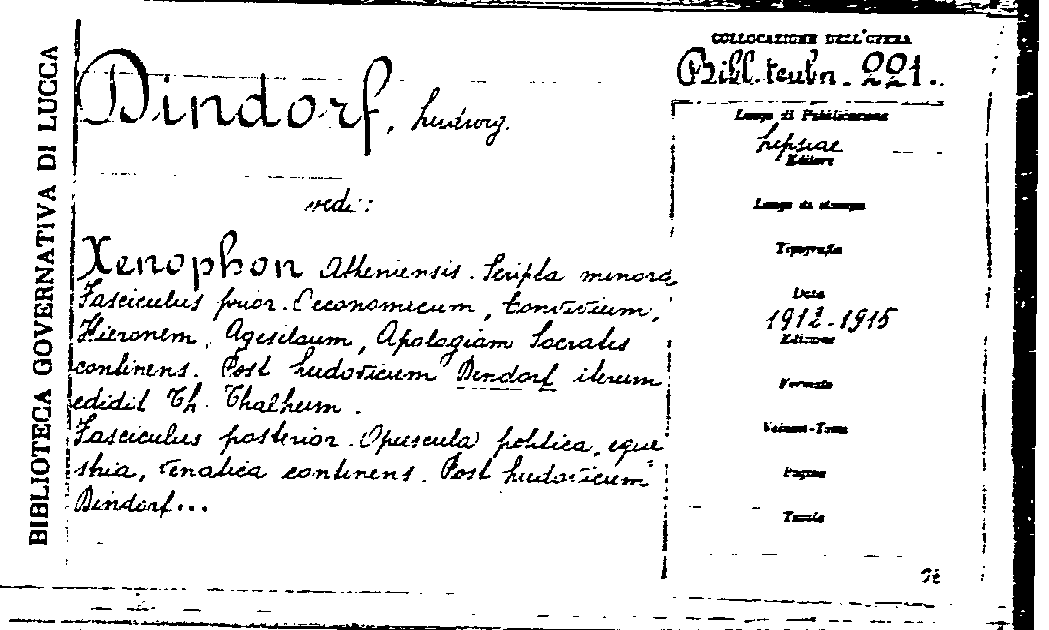 BIBLIOTECA GOVERNATIVA DI LUCCA
Dindorf, Ludwig.
vedi:
Xenophon Atheniensis. Scripta minora
Fasciculus prior. Oeconomicum, Convivium,
Hieronem, Agesilaum, Apologiam Socratis
continens. Post Ludovicum Dindorf iterum
edidit Th. Thalheim.
Fasciculus posterior. Opuscula politica, eque-
stria, venatica continens. Post Ludovicum
Dindorf...
COLLOCAZIONE DELL'OPERA
Bibl. teubn. 221..
Luogo di Pubblicazione
Lipsiae
Editore
Luogo di stampa
Tipografia
Data
1912-1915
Edizione
Formato
Volumi-Tomi
Pagine
Tavole